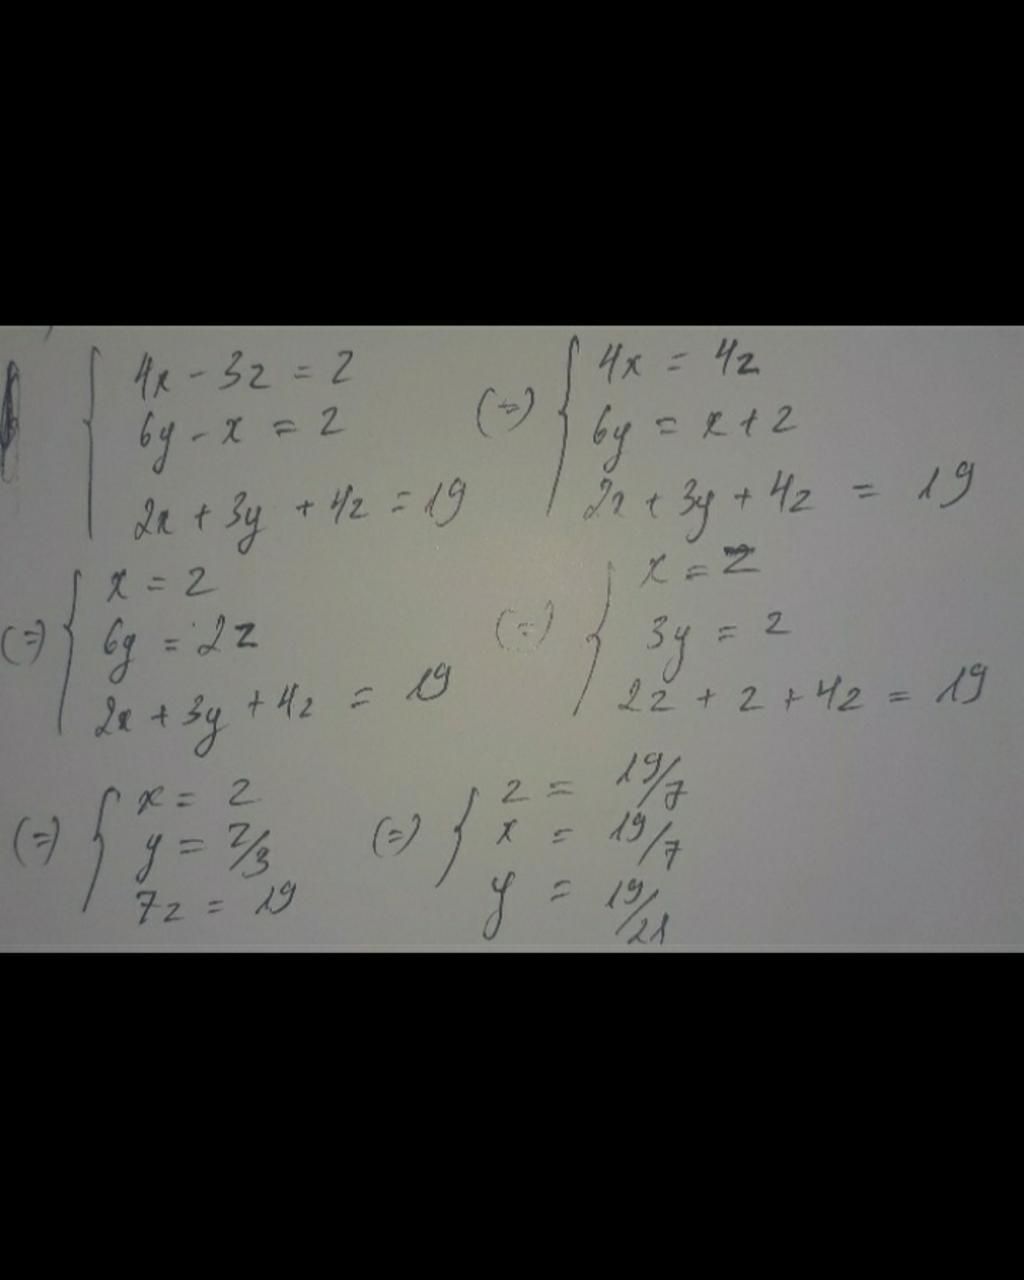 4x - 3z = z
6y - x = z
2x + 3y + 4z = 19
(=) 4x = 4z
6y = x + z
2x + 3y + 4z = 19
(=) x = z
6y = 2z
2x + 3y + 4z = 19
(=) x = z
3y = z
2z + z + 4z = 19
(=) x = z
y = z/3
7z = 19
(=) z = 19/7
x = 19/7
y = 19/21